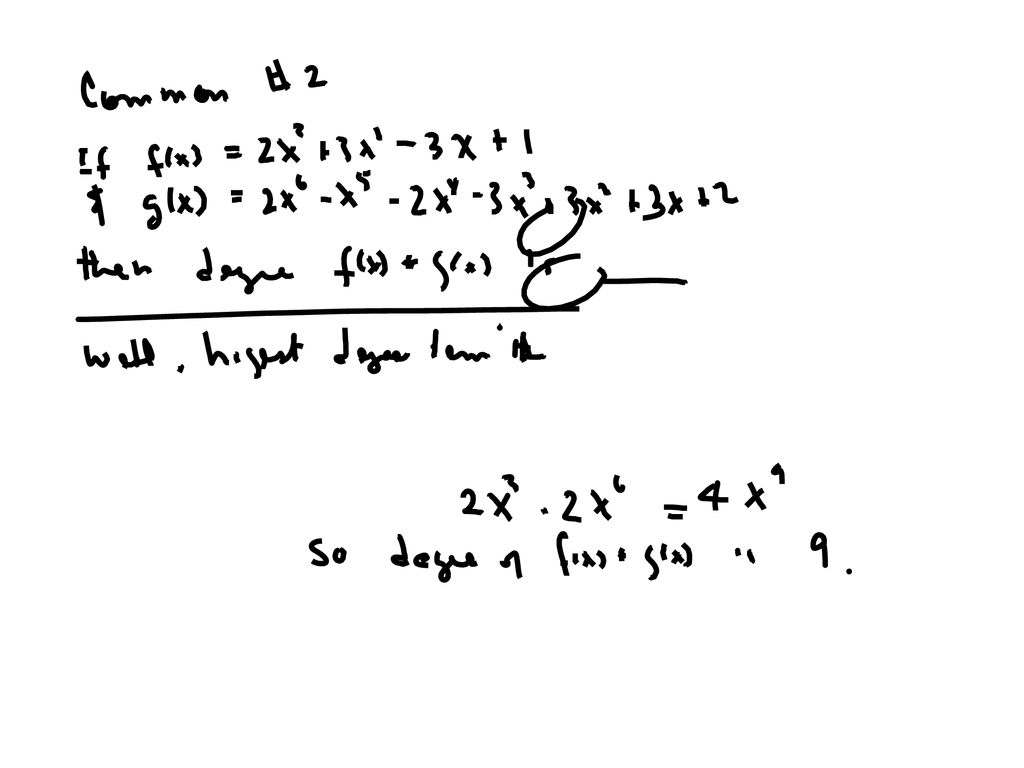 Common #2
If f(x) = 2x³ + 3x² - 3x + 1
& g(x) = 2x⁶ - x⁵ - 2x⁴ - 3x³ + 3x² + 3x + 2
then degree f(x) * g(x) is
Well, higest degree term
2x³ · 2x⁶ = 4x⁹
So degree of f(x) * g(x) is 9.